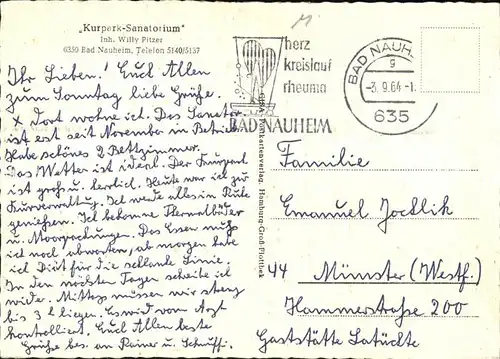 „Kurpark-Sanatorium"
Inh. Willy Pitzer
6350 Bad Nauheim, Telefon 5140/5137
Ihr Lieben! Euch Allen
zum Sonntag liebe Grüße.
x Dort wohne ich. Das Sanator.
ist erst seit November in Betrieb
Habe schönes 2 Bettzimmer.
Das Wetter ist ideal. Der Kurpark
ist groß u. herlich. Heute war ich zur
Kurverwaltug. Ich werde alles in Ruhe
genießen. Ich bekomme Thermalbäder
u. Moorpackungen. Das Essen muß
ich noch abwarten, ab morgen habe
ich Diät für die schlanke Linie.
In den nächsten Tagen schreibe ich
wieder. Mittags müssen wir streng
bis 3 h liegen. Es wird vom Arzt
kontrolliert. Euch Allen beste
Grüße bes. an Rainer u.
herz
kreislauf
rheuma
BAD NAUHEIM
BAD NAUH
g
-3. 9. 64 -1
635
Ansichtskartenverlag, Hamburg-Groß-Flottbek
Familie
Emanuel Jocklik
44 Münster (Westf.)
Hammerstraße 200
Gaststätte Lutüchte